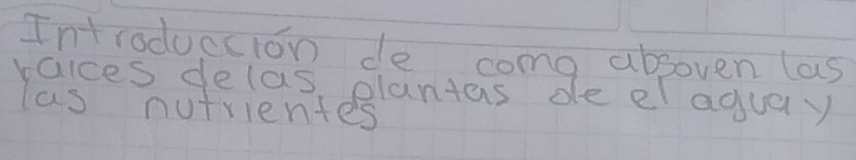 Introducción de como absoven las
raices delas plantas de el agua y
las nutrientes